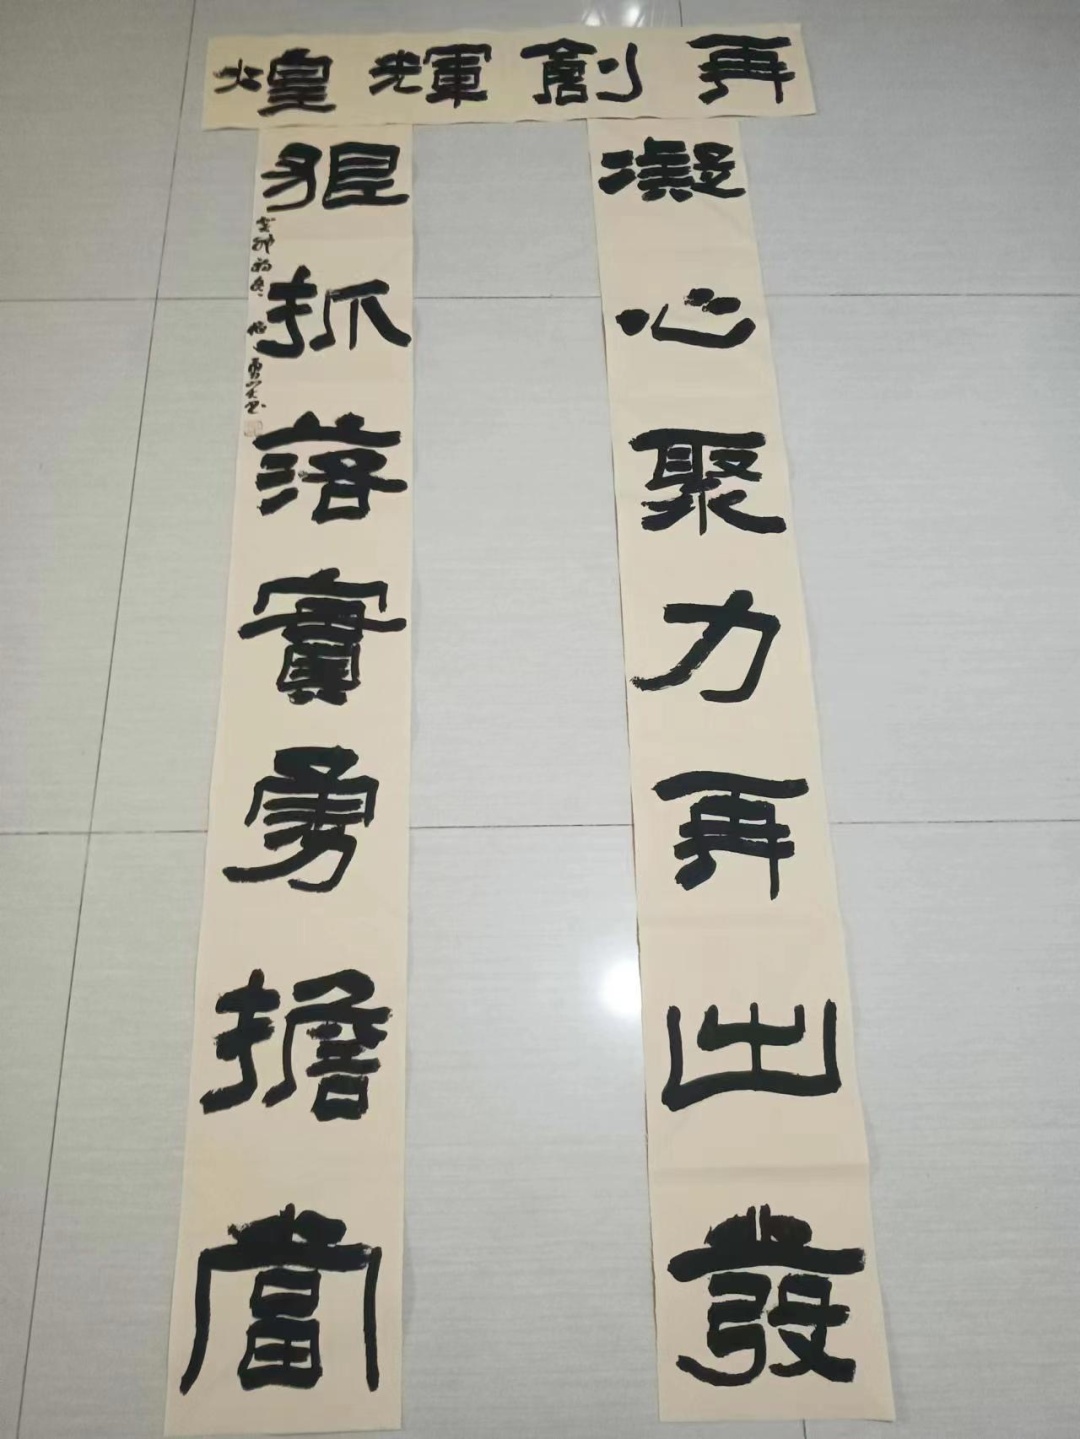 再創輝煌
凝心聚力再出發
狠抓落實勇擔當
癸卯初冬